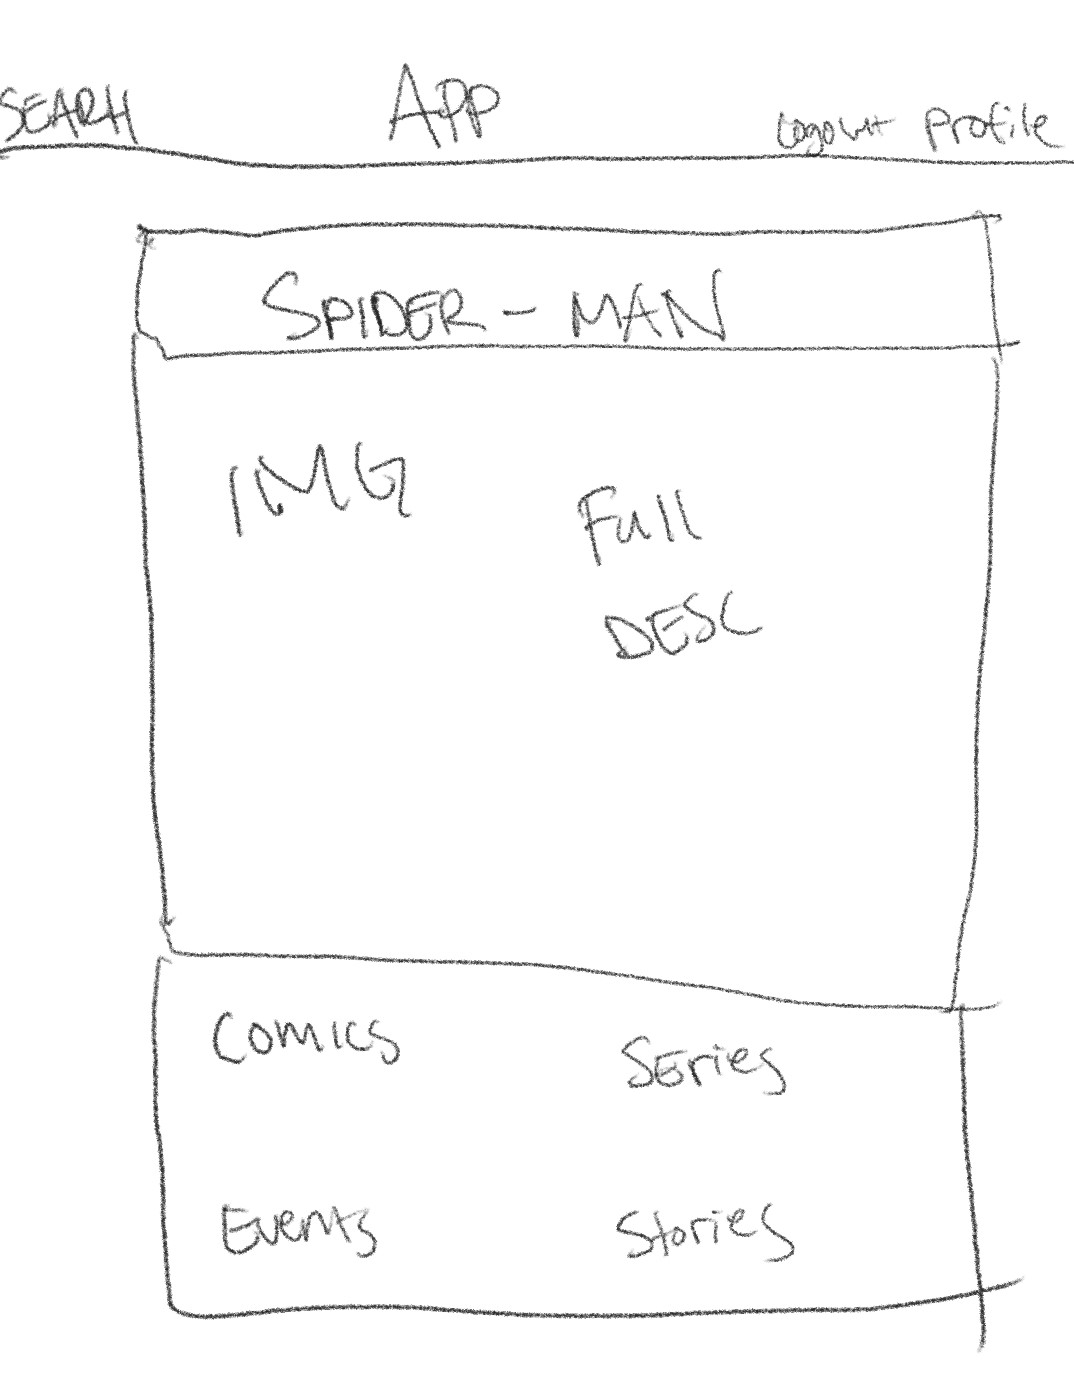 SEARH APP Logout Profile
SPIDER - MAN
IMG
Full
DESC
Comics Series
Events Stories